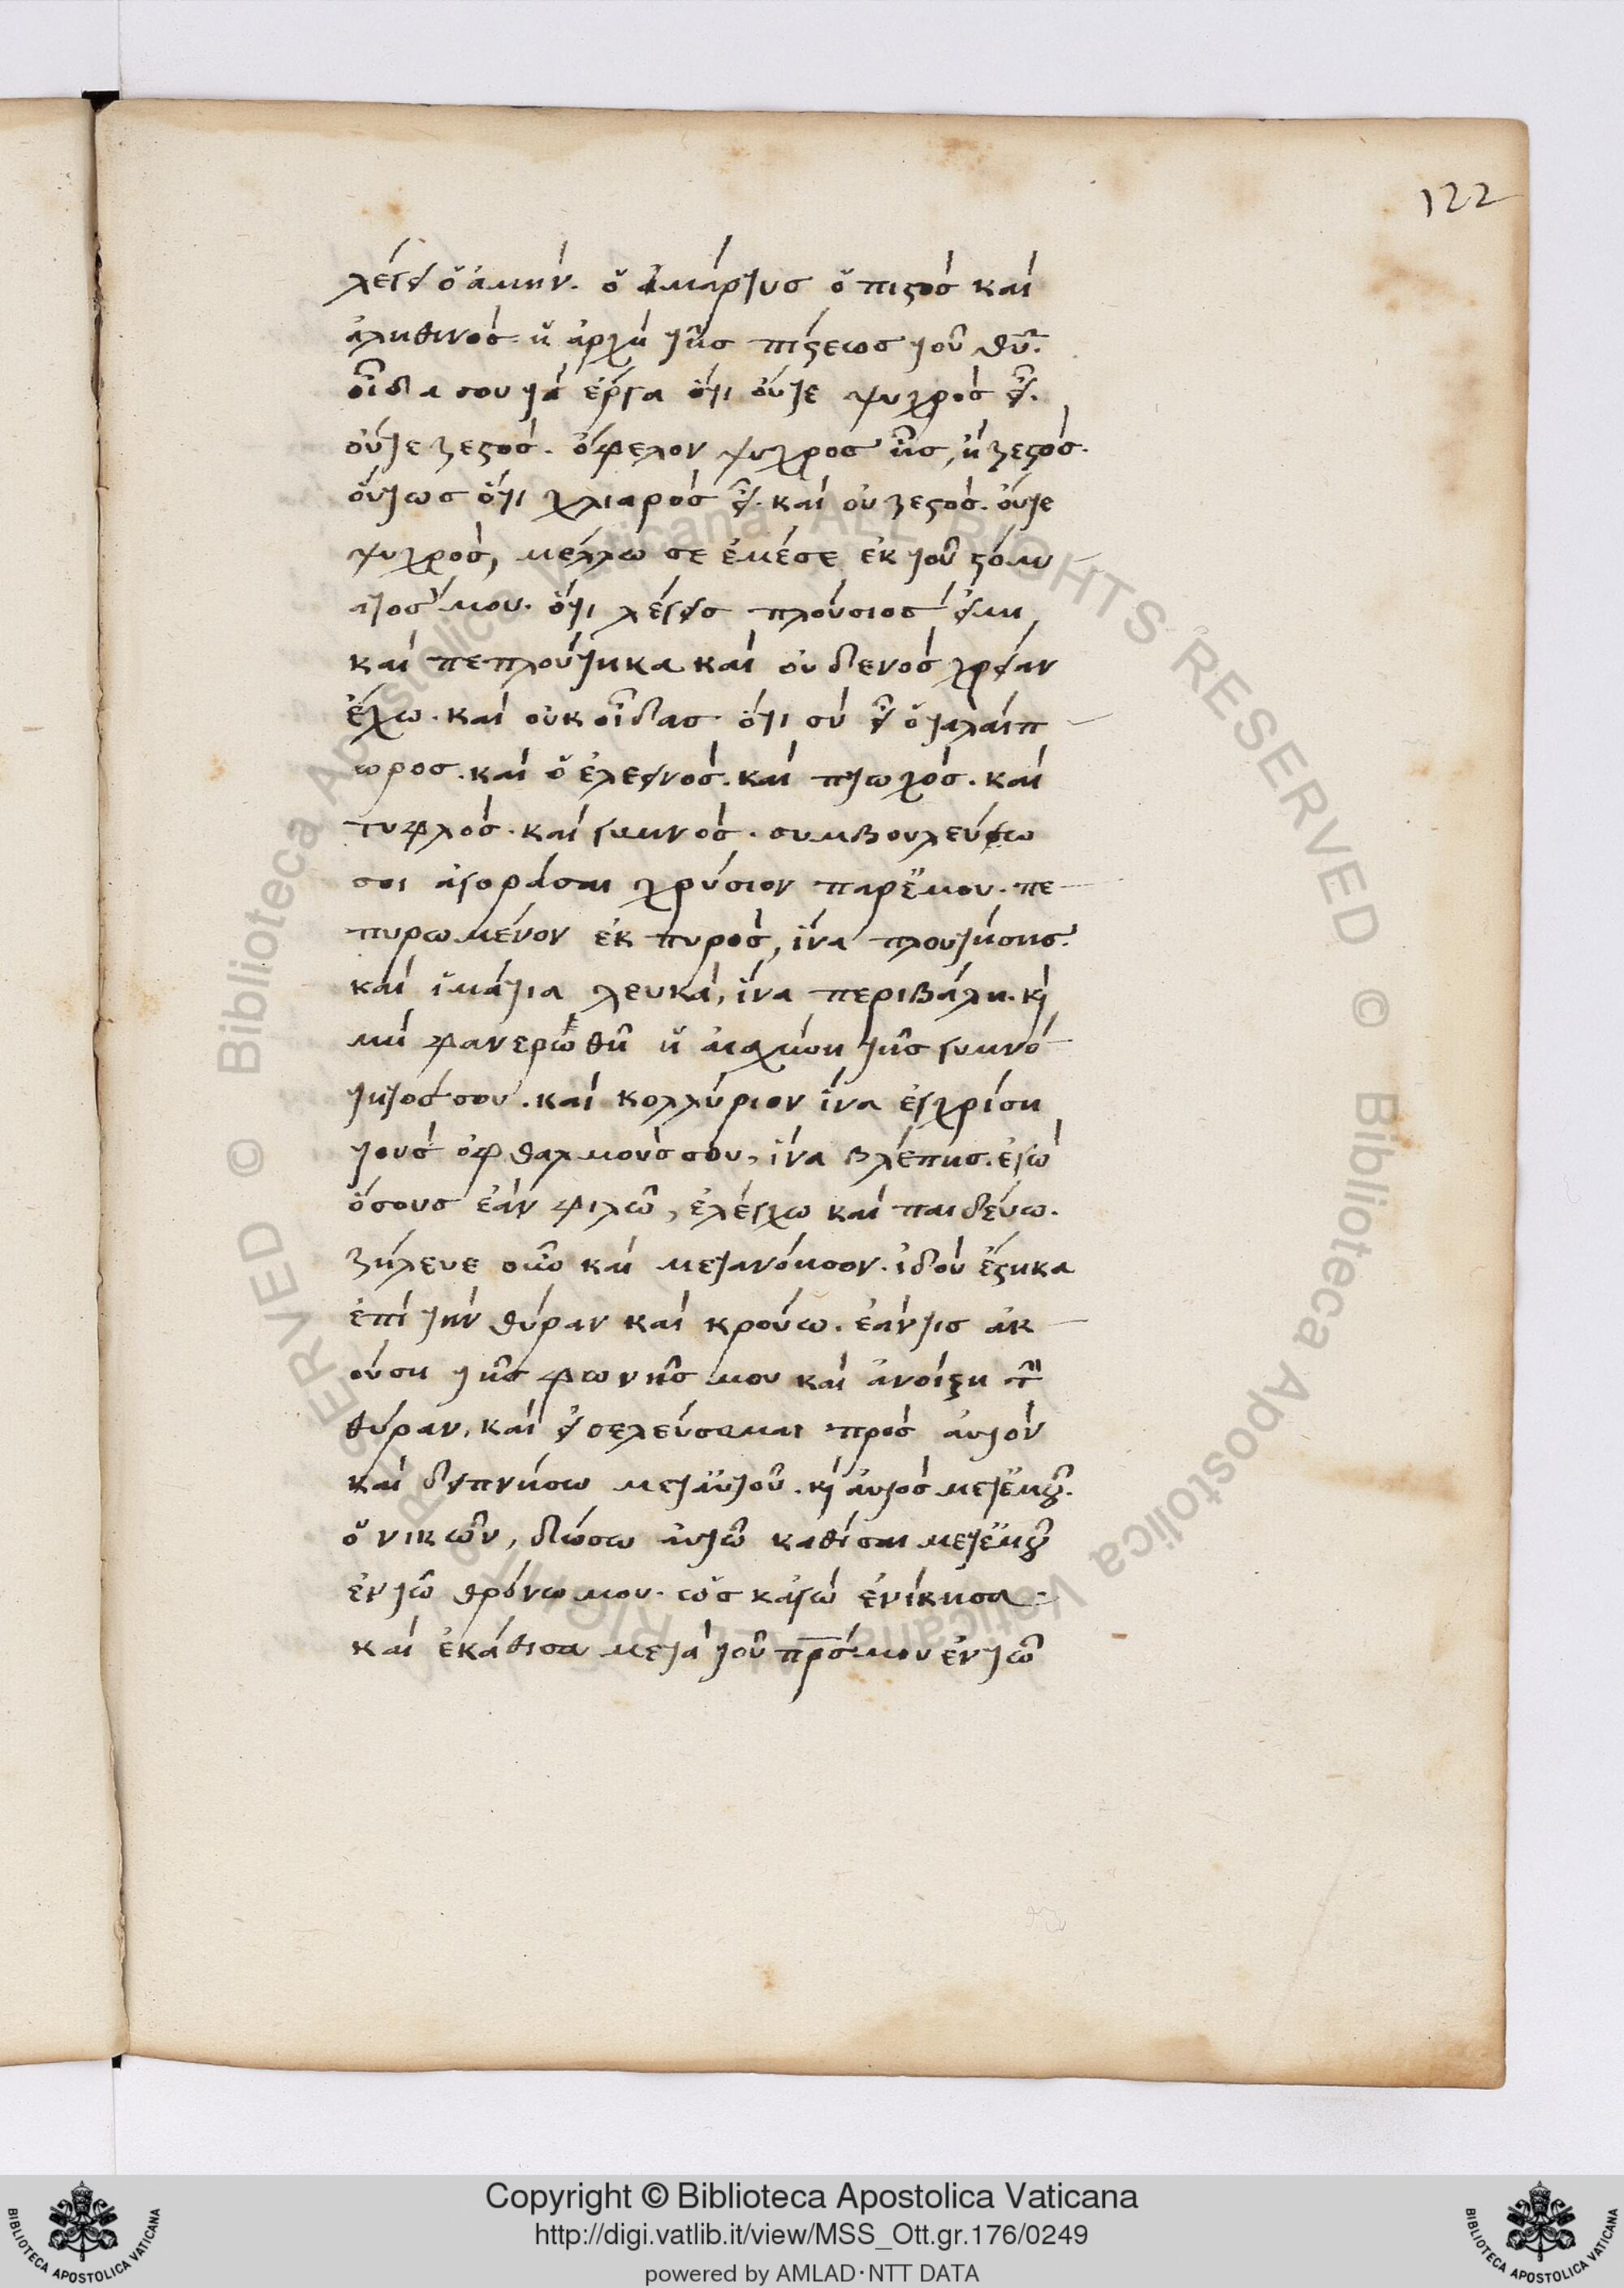 122
λέγει ὁ ἀμήν. ὁ μάρτυς ὁ πιστὸς καὶ
ἀληθινὸς· ἡ ἀρχὴ τῆς πίστεως τοῦ θῡ.
οἶδά σου τὰ ἔργα ὅτι οὔτε ψυχρὸς εἶ.
οὔτε ζεστός. ὄφελον ψυχρὸς ἦς, ἢ ζεστός.
οὕτως ὅτι χλιαρὸς εἶ. καὶ οὐ ζεστός. οὔτε
ψυχρός, μέλλω σε ἐμέσε ἐκ τοῦ στόμ
ατός μου. ὅτι λέγεις πλούσιός εἰμι
καὶ πεπλούτηκα καὶ οὐδενὸς χρείαν
ἔχω. καὶ οὐκ οἶδας ὅτι σὺ εἶ ὁ ταλαίπ
ωρος. καὶ ὁ ἐλεεινός. καὶ πτωχός. καὶ
τυφλός. καὶ γυμνός. συμβουλεύσω
σοι ἀγοράσαι χρύσιον παρ ἐμου. πε
πυρωμένον ἐκ πυρός, ἵνα πλουτήσης.
καὶ ἱμάτια λευκά, ἵνα περιβάλη. κὶ
μὴ φανερωθῆ ἡ αἰσχύνη τῆς γυμνό
τητός σου. καὶ κολλύριον ἵνα ἐγχρίση
τοὺς ὀφθαλμούς σου, ἵνα βλέπης. ἐγὼ
ὅσους ἐὰν φιλῶ, ἐλέγχω καὶ παιδεύω.
ζήλευε οὖν καὶ μετανόησον. ἰδοὺ ἕστηκα
ἐπὶ τὴν θύραν καὶ κρούω. ἐάν τις ἀκ
ούση τῆς φωνῆς μου καὶ ἀνοίξη τὴν
θύραν, καὶ εἰσελεύσομαι πρὸς αὐτὸν
καὶ δειπνήσω μετ αὐτοῦ. κὶ αὐτὸς μετ ἐμοῦ.
ὁ νικῶν, δώσω αὐτῶ καθίσαι μετ ἐμοῦ
ἐν τῶ θρόνω μου. ὡς κἀγὼ ἐνίκησα.
καὶ ἐκάθισα μετὰ τοῦ πρ̅ς μου ἐν τῶ
© Biblioteca Apostolica Vaticana ALL RIGHTS RESERVED © Biblioteca Apostolica Vaticana ALL RIGHTS RESERVED
Copyright © Biblioteca Apostolica Vaticana
http://digi.vatlib.it/view/MSS_Ott.gr.176/0249
powered by AMLAD·NTT DATA
BIBLIOTECA APOSTOLICA VATICANA
BIBLIOTECA APOSTOLICA VATICANA